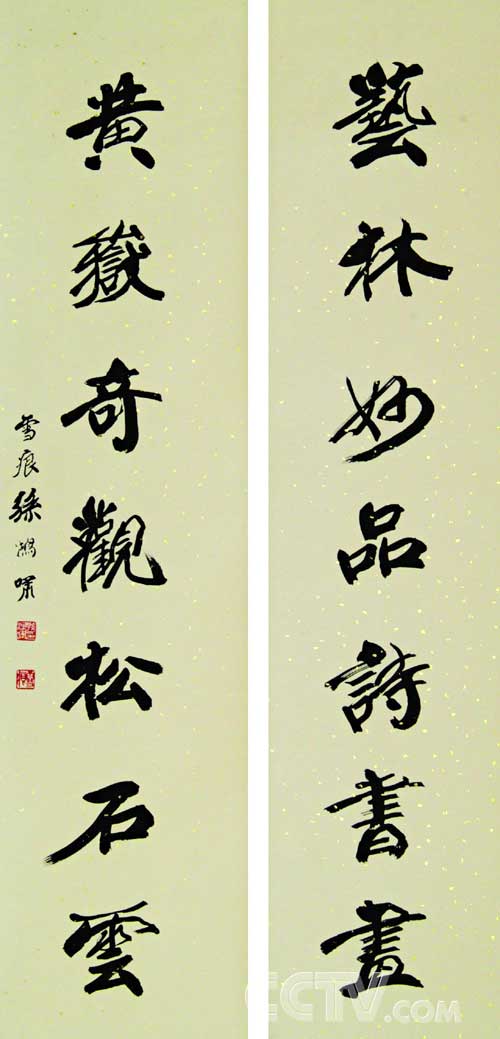 藝林妙品詩書畫
黃嶽奇觀松石雲
雪痕
CCTV.com